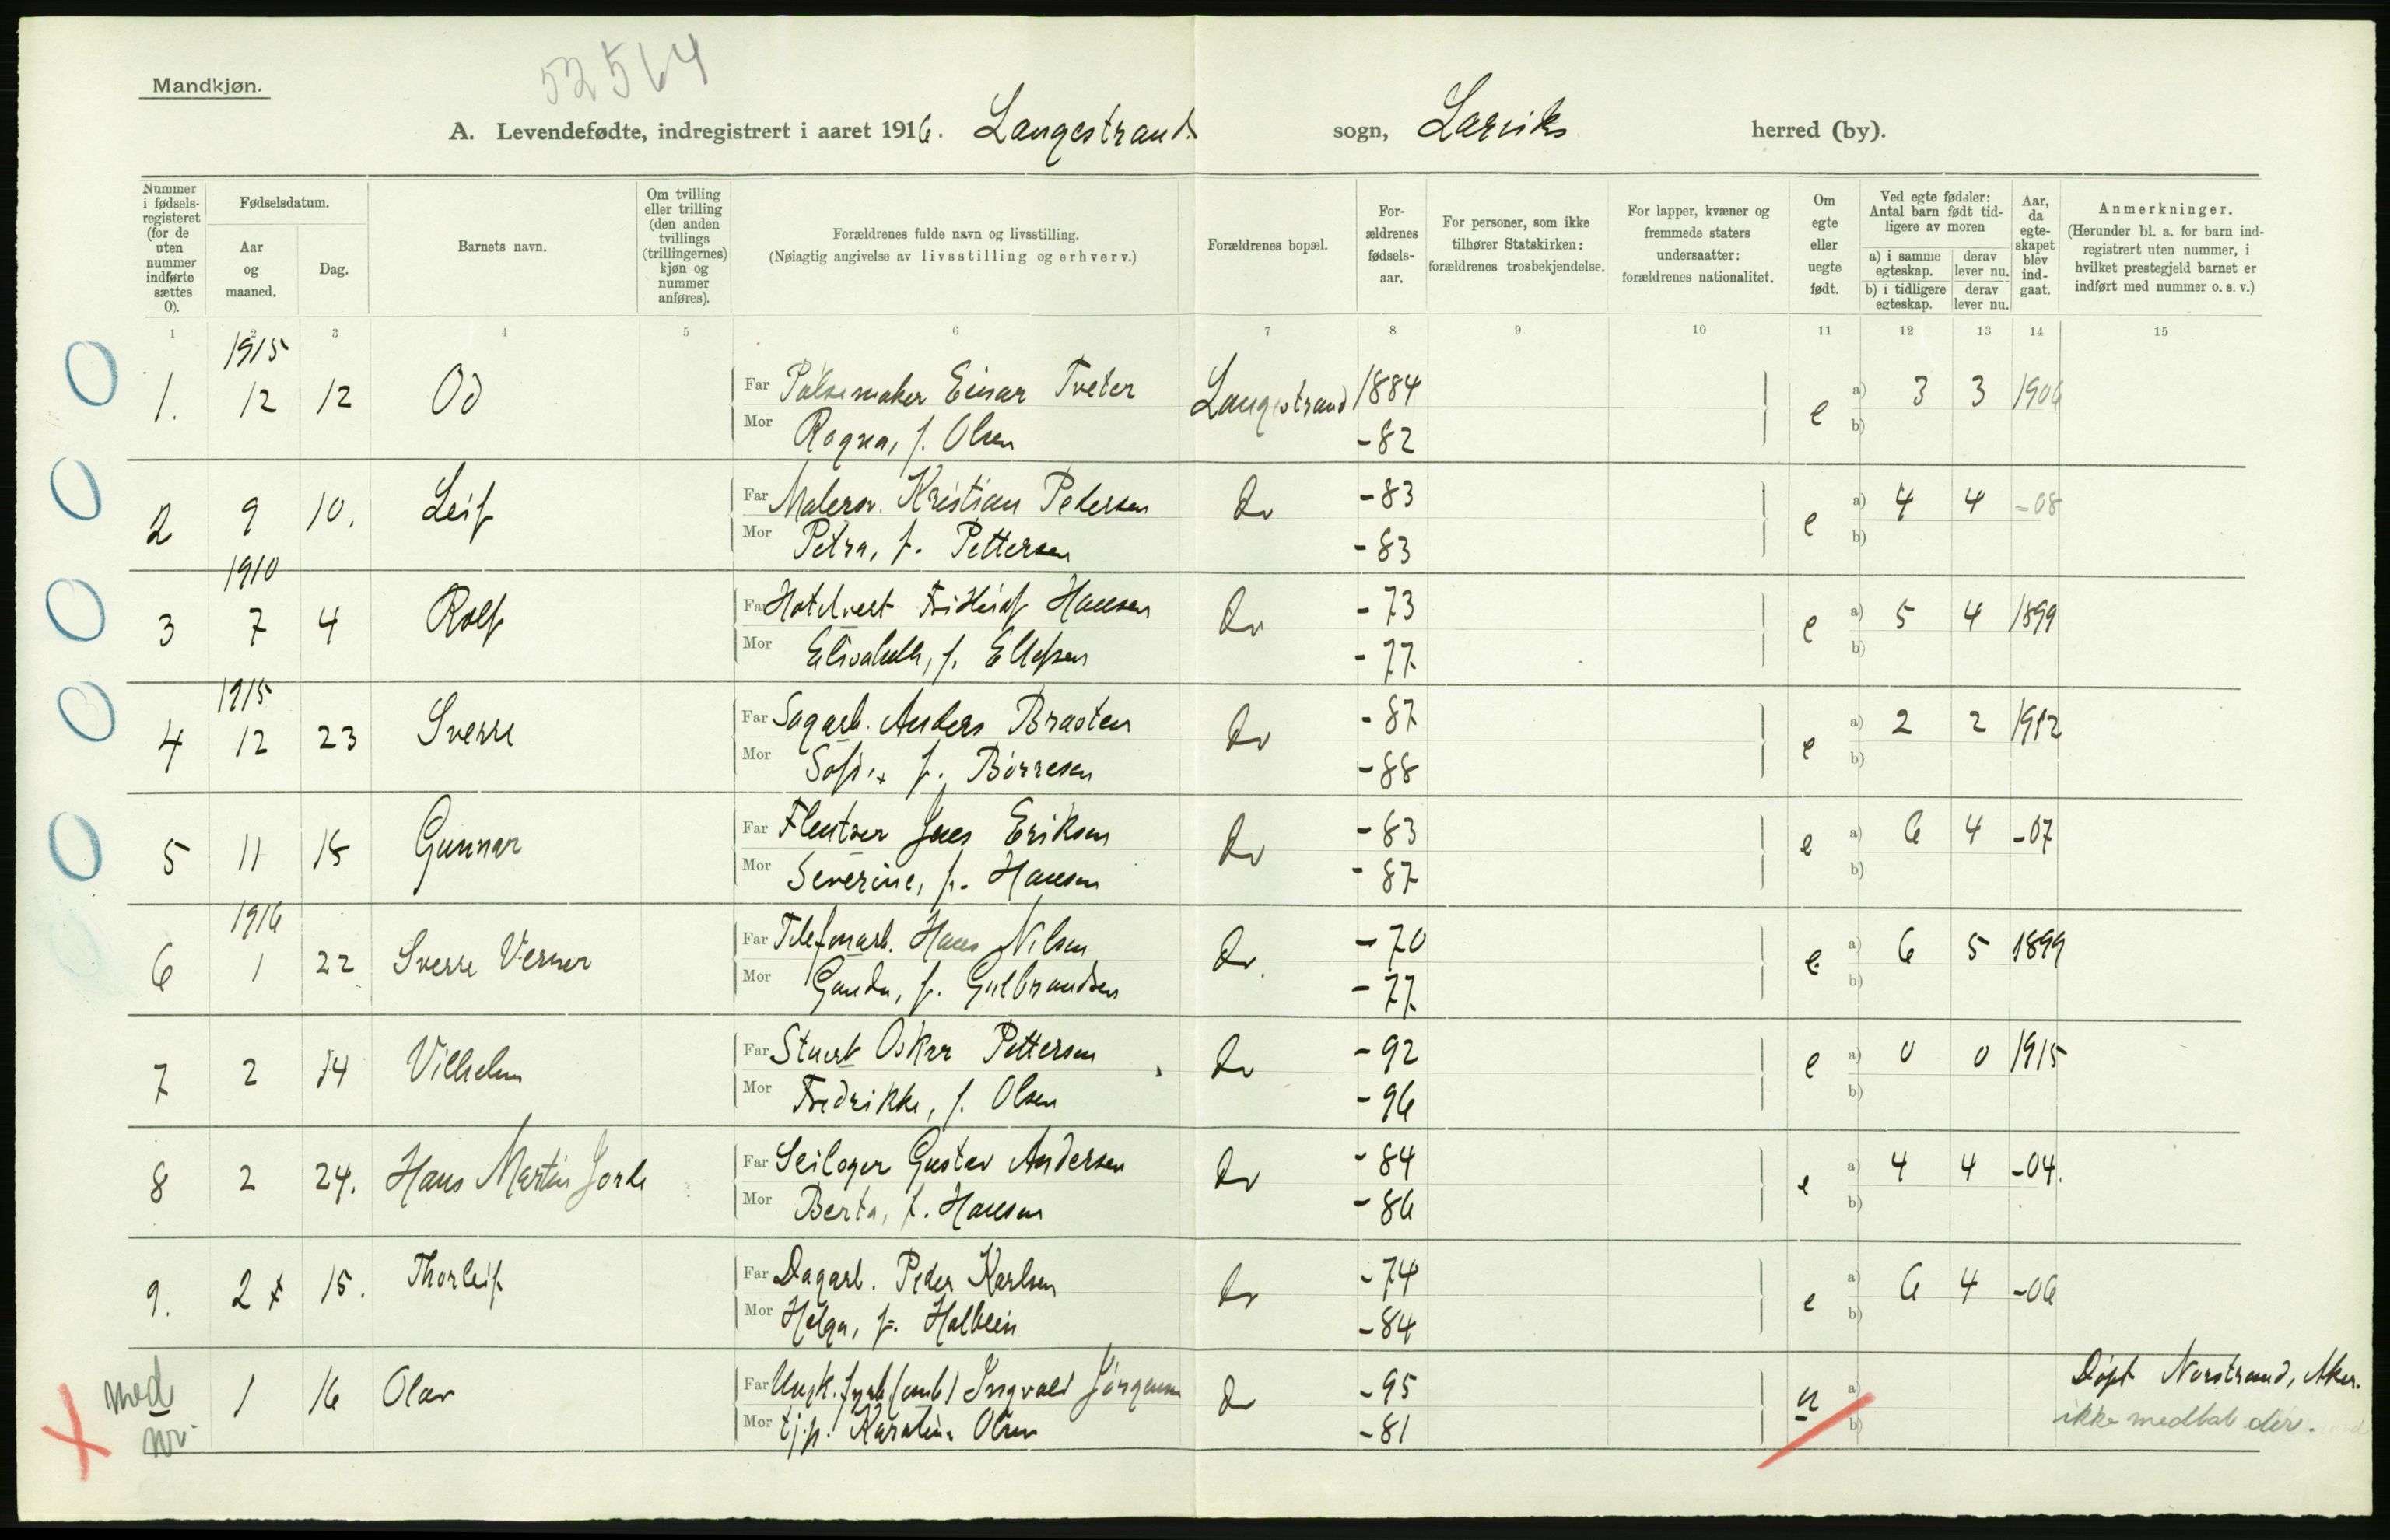 Mandkjøn.
52564
A. Levendefødte, indregistrert i aaret 1916. Langestrands sogn, Larviks herred (by).
Nummer i fødselsregisteret (for de uten nummer indførte sættes 0).
Fødselsdatum.
Aar og maaned.
Dag.
Barnets navn.
Om tvilling eller trilling (den anden tvillings (trillingernes) kjøn og nummer anføres).
Forældrenes fulde navn og livsstilling.
(Nøiagtig angivelse av livsstilling og erhverv.)
Forældrenes bopæl.
Forældrenes fødselsaar.
For personer, som ikke tilhører Statskirken: forældrenes trosbekjendelse.
For lapper, kvæner og fremmede staters undersaatter: forældrenes nationalitet.
Om egte eller uegte født.
Ved egte fødsler: Antal barn født tidligere av moren
a) i samme egteskap.
derav lever nu.
b) i tidligere egteskap.
derav lever nu.
Aar, da egteskapet blev indgaat.
Anmerkninger.
(Herunder bl. a. for barn indregistrert uten nummer, i hvilket prestegjeld barnet er indført med nummer o. s. v.)
1 2 3 4 5 6 7 8 9 10 11 12 13 14 15
1915
1. 12 12 Od Far Pølsemaker Einar Tveter Langestrand 1884 e a) 3 3 1906
Mor Ragna, f. Olsen -82 b)
2 9 10. Leif Far Malersv. Kristian Pedersen do -83 e a) 4 4 -08
Mor Petra, f. Pettersen -83 b)
1910
3 7 4 Rolf Far Hotelvert Frithiof Hansen do -73 e a) 5 4 1899
Mor Elisabeth, f. Ellefsen -77 b)
1915
4 12 23 Sverre Far Sagarb. Anders Braaten do -87 e a) 2 2 1912
Mor Sofie f. Børresen -88 b)
5 11 15 Gunnar Far Flentser Jens Eriksen do -83 e a) 6 4 -07
Mor Severine, f. Hansen -87 b)
1916
6 1 22 Sverre Verner Far Telefonarb. Hans Nilsen do -70 e a) 6 5 1899
Mor Gunda, f. Gulbrandsen -77 b)
7 2 14 Vilhelm Far Stuert Oskar Pettersen do -92 e a) 0 0 1915
Mor Fredrikke, f. Olsen -96 b)
8 2 24. Hans Martin Far Seiloger Gustav Andersen do -84 e a) 4 4 -04.
Mor Berta, f. Hansen -86 b)
9. 2 15. Thorleif Far Dagarb. Peder Karlsen do -74 e a) 6 4 -06
Mor Helga, f. Holbein -84 b)
med nr 1 16 Olav Far Ungk. Ingvald Jørgensen do -95 u a) Døpt Norstrand, Aker.
Mor tj.p. Karoline Olsen -81 b) ikke medtat der.